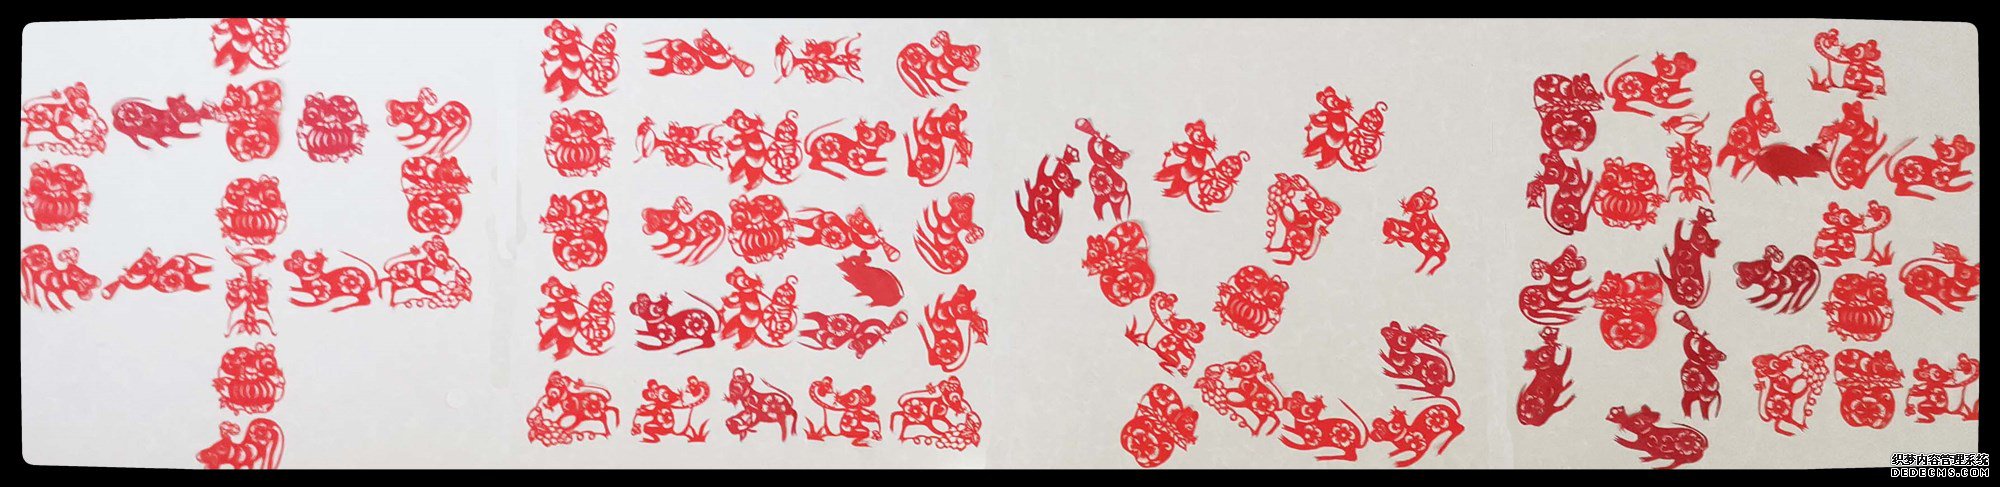 中国必胜
织梦内容管理系统
DEDECMS.COM